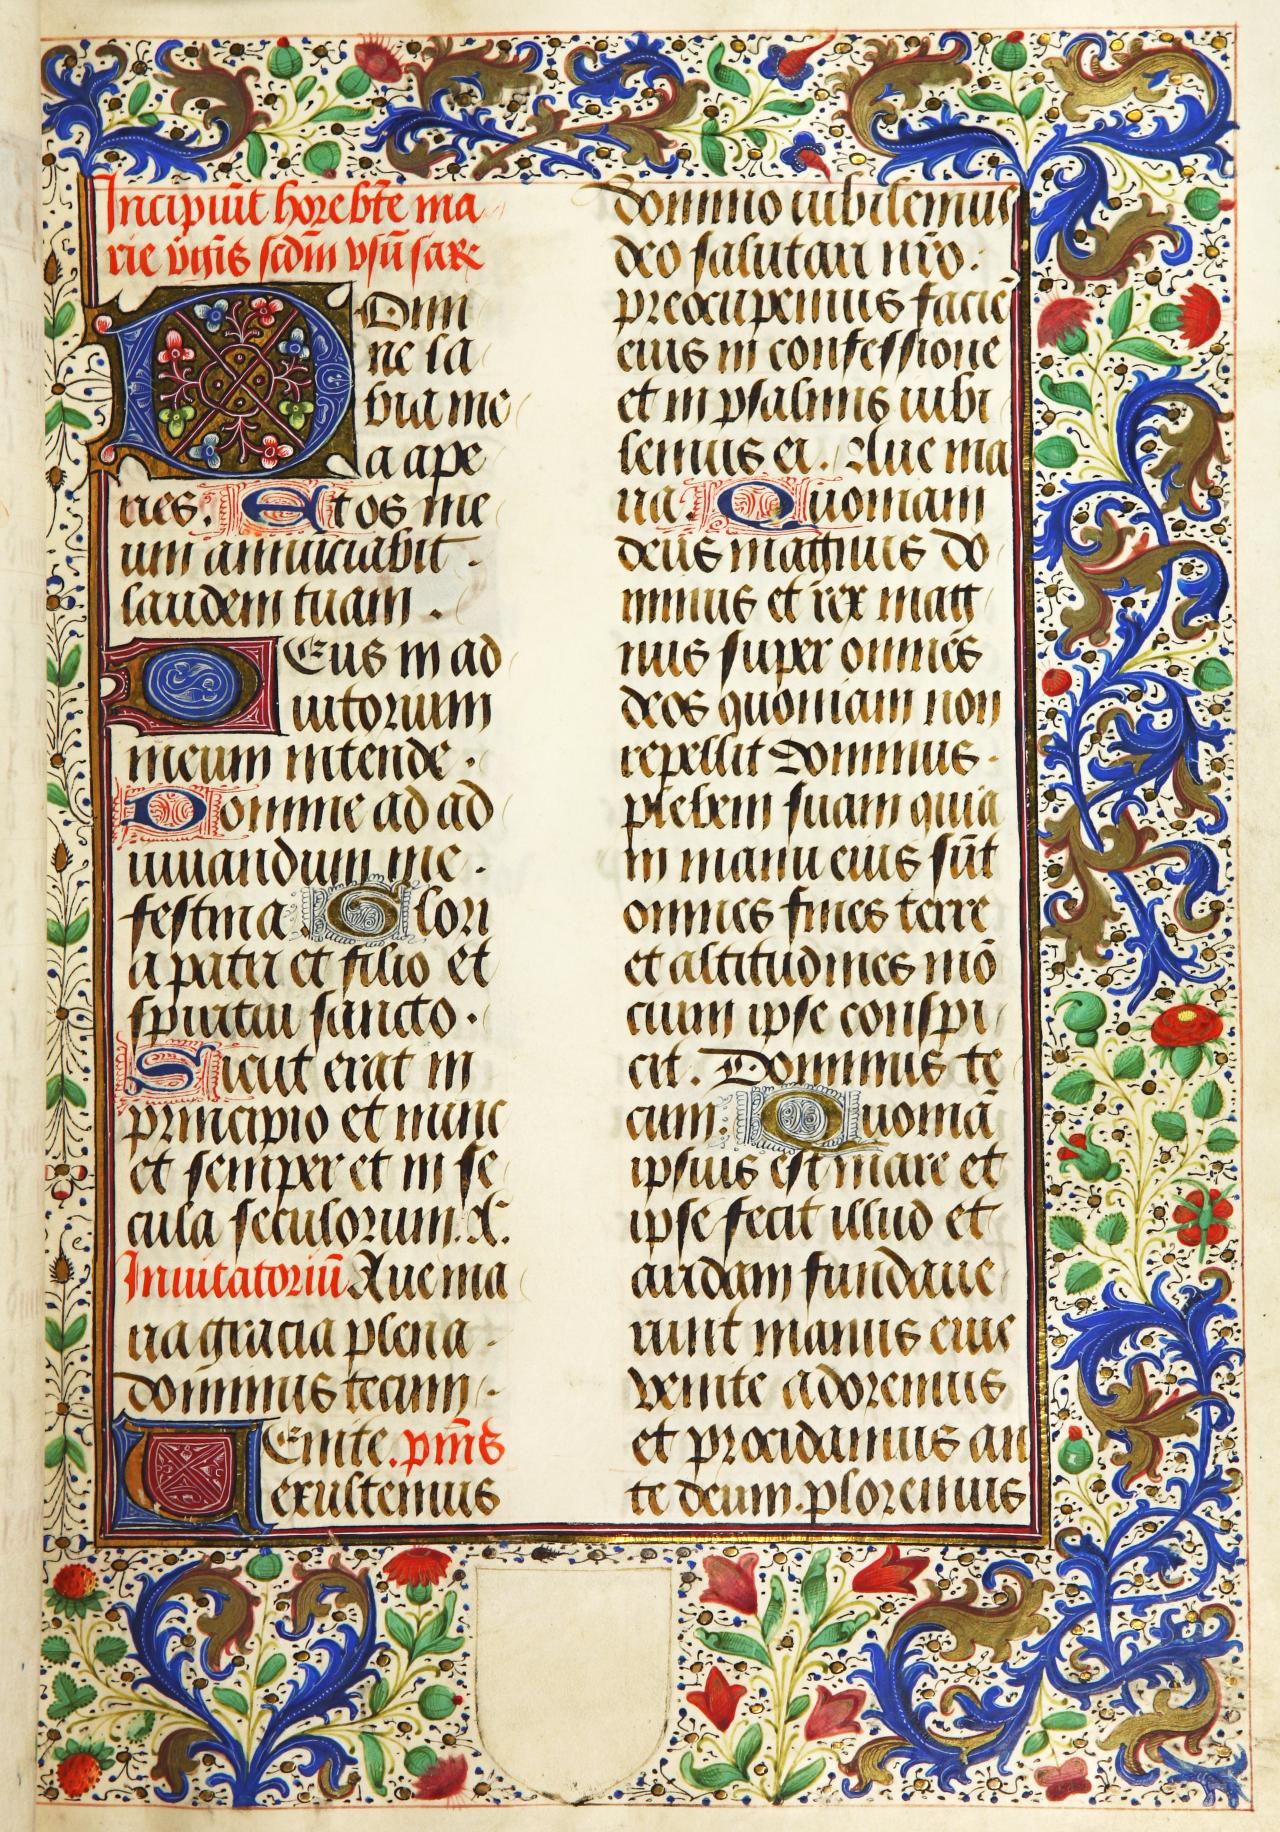 Incipiu͂t hore bt͂e ma
rie v͂gi͂s scd͂m vsu͂ sar
Domi
ne la
bia me
a ape
ries. Et os me
um annunciabit
laudem tuam.
Deus in ad
iutorium
meum intende.
Domine ad ad
iuuandum me
festina. Glori
a patri et filio et
spiritui sancto.
Sicut erat in
principio et nunc
et semper et in se
cula seculorum. A.
Inuitatoriu͂ Aue ma
ria gracia plena
dominus tecum.
Uenite. pm͂s
exultemus
domino iubilemus
deo salutari nr͂o.
preocupemus facie͂
eius in confessione
et in psalmis iubi
lemus ei. Aue ma
ria. Quoniam
deus magnus do
minus et rex mag
nus super omnes
deos quoniam non
repellit dominus
plebem suam quia
in manu eius su͂t
omnes fines terre
et altitudines mo͂
cium ipse conspi
cit. Dominus te
cum. Quonia͂
ipsius est mare et
ipse fecit illud et
aridam fundaue
runt manus eius
venite adoremus
et procidamus an
te deum. ploremus